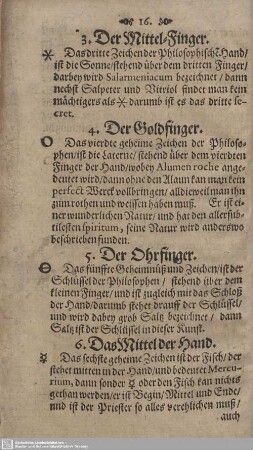 16.
3. Der Mittel-Finger.
Das dritte Zeichen der Philosophischẽ Hand/
ist die Sonne/ stehend über dem dritten Finger/
darbey wird Salarmeniacum bezeichnet / dann
nechst Salpeter und Vitriol findet man kein
mächtigers als ⚹ darumb ist es das dritte se-
cret.
4. Der Goldfinger.
Das vierdte geheime Zeichen der Philoso-
phen/ist die Laterne/ stehend über dem vierdten
Finger der Hand/wobey Alumen roche ange-
deutet wird/dann ohne den Alaun kan man kein
perfect Werck vollbringen/ alldieweil man ihn
zum rothen und weissen haben muß. Er ist ei-
ner wunderlichen Natur/ und hat den allersub-
tilesten spiritum, seine Natur wird anderswo
beschrieben funden.
5. Der Ohrfinger.
Das fünffte Geheimnüß und Zeichen/ist der
Schlüssel der Philosophen / stehend über dem
kleinen Finger/und ist zugleich mit das Schloß
der Hand/darumb stehet drauff der Schlüssel/
und wird dabey grob Saltz bezeichnet / dann
Saltz ist der Schlüssel in dieser Kunst.
6. Das Mittel der Hand.
☿ Das sechste geheime Zeichen ist der Fisch/ der
stehet mitten in der Hand/und bedeutet Mercu-
rium, dann sonder ☿ oder den Fisch kan nichts
gethan werden/er ist Begin/Mittel und Ende/
und ist der Priester so alles verehlichen muß/
auch